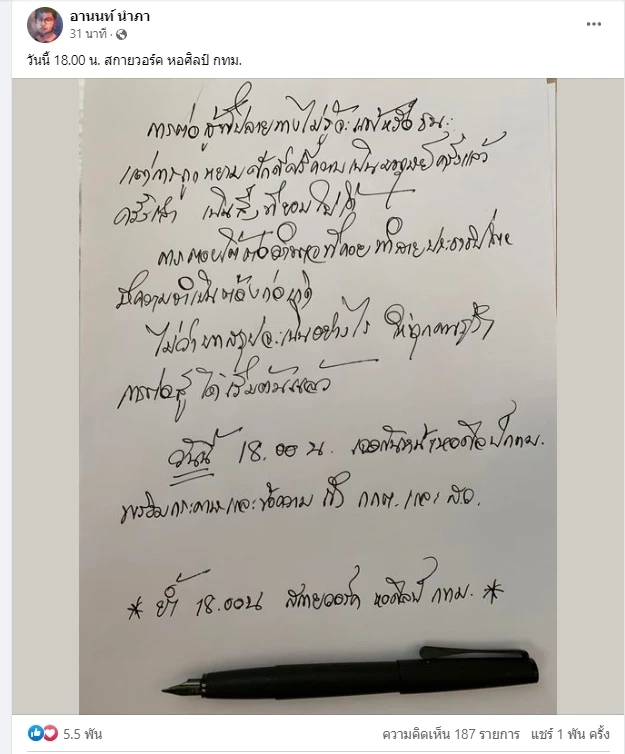 อานนท์ นำภา
31 นาที ·
วันนี้ 18.00 น. สกายวอร์ค หอศิลป์ กทม.
การต่อสู้ที่ปลายทางไม่รู้จะแพ้หรือชนะ
แต่การถูกหยามศักดิ์ศรีความเป็นมนุษย์ครั้งแล้ว
ครั้งเล่า เป็นสิ่งที่ยอมไม่ได้
การตอบโต้ต่ออำนาจที่คอยทำลายประชาธิปไตย
มีความจำเป็นต้องก่อเกิด
ไม่ว่าบทสรุปจะเป็นอย่างไร ให้ทุกคนรู้ว่า
การต่อสู้ได้เริ่มต้นแล้ว
วันนี้ 18.00 น. เจอกันหน้าหอศิลป์ กทม.
พร้อมกระดาษและข้อความ ถึง กกต. และ สว.
* ย้ำ 18.00 น สกายวอร์ค หอศิลป์ กทม. *
5.5 พัน
ความคิดเห็น 187 รายการ แชร์ 1 พัน ครั้ง